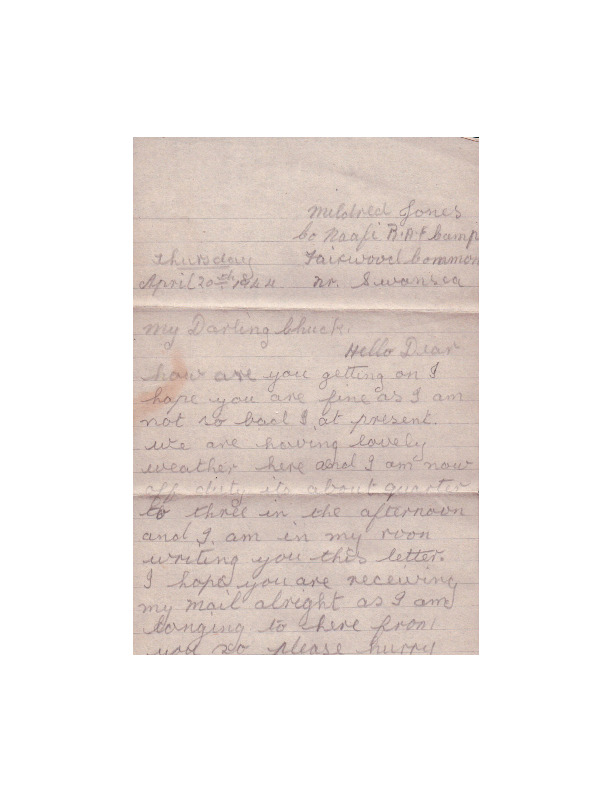 Mildred Jones
Co Naafi R.A.F Camp
Thursday Fairwood Common
April 20th 1944 nr. Swansea
My Darling Chuck,
Hello Dear
how are you getting on I
hope you are fine as I am
not so bad I. at present.
we are having lovely
weather here and I am now
off duty its about quarter
to three in the afternoon
and I. am in my room
writing you this letter.
I hope you are receiving
my mail alright as I am
longing to here from
you so please hurry